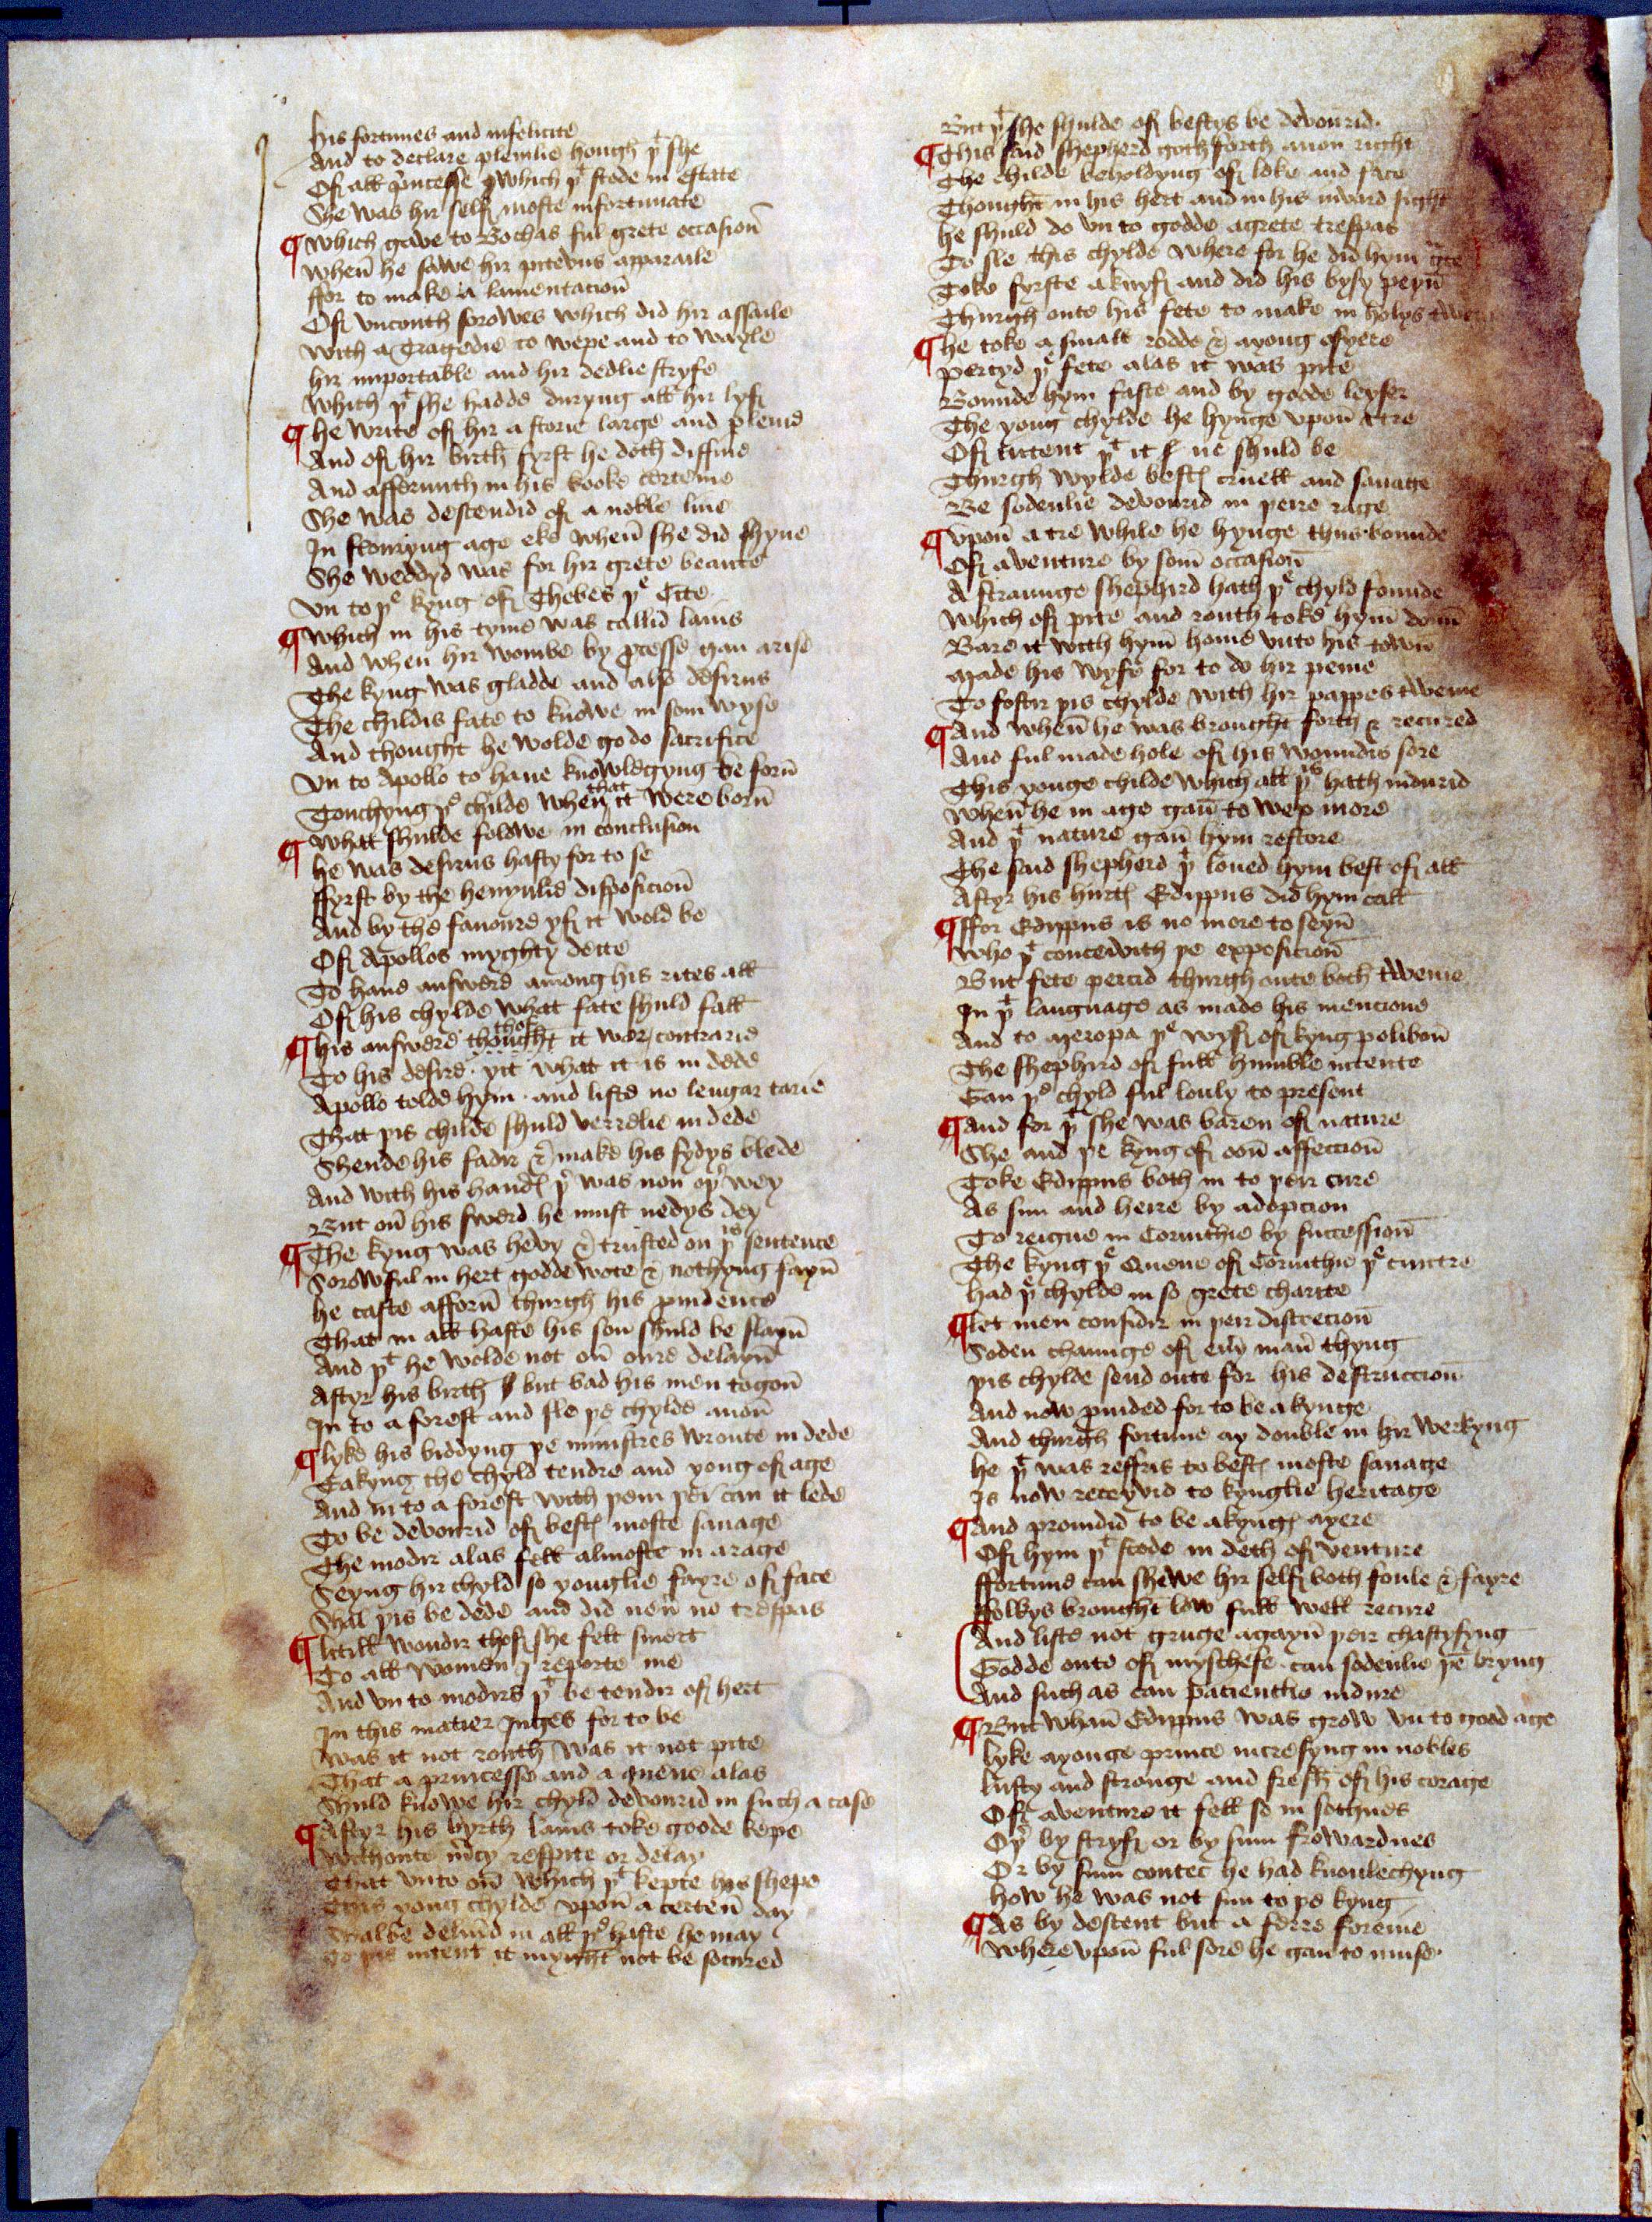 his fortunes and infelicite
And to declare pleinlie hough þt she
Off all princesse which þt stode in estate
She was hir self moste infortunate
¶ which gave to Bochas ful grete occasion̄
when̄ he sawe hir pitevus apparaile
ffor to make a lamentacion̄
Off vnconth sorowes which did hir assaile
with a Tragedie to wepe and to wayle
hir importable and hir dedlie stryfe
which þt she hadde duryng all hir lyff
¶ he write off hir a storie large and plenid
And off hir birth fyrst he doth diffine
And affermith in his booke certeine
She was descendid off a noble line
In flouryng age eke when̄ she did shyne
She weddyd was for hir grete beaute
vn to þe kyng off Thebes þe Cite
¶ which in his tyme was callid laius
And when hir wombe by processe gan arise
The kyng was gladde and also desirus
The childis fate to knowe in som wyse
And thought he wolde go do sacrifice
vn to Apollo to haue knowlegyng be forn̄
Touchyng þe childe when that it were born̄
¶ what shulde folowe in conclusion
he was desirus hasty for to se
ffyrst by the hevynlie disposicion̄
And by the fauoure yff it wold be
Off Apollos myghty deite
To haue answere among his rites all
Off his chylde what fate shuld fall
¶ his answere thought thof it wer contrarie
To his desire · yit what it is in dede
Apollo tolde hym · and liste no lengar tarie
That þis childe shuld verrelie in dede
Shende his fadir & make his sydys blede
And with his hand þr was non oþr wey
But on̄ his swerd he must nedys dey
¶ The kyng was hevy & trusted on þis sentence
Sorowful in hert godde wote & nothyng fayn̄
he caste afforn̄ thurgh his prudence
That in all haste his son shuld be slayn̄
And þt he wolde not on̄ oure delayn̄
Aftyr his birth but bad his men to gon̄
In to a forest and sle þe chylde anon̄
¶ lyke his biddyng þe ministres wroute in dede
Takyng the chyld tendre and yong off age
And in to a forest with þem þei can it lede
To be devourid off best moste sauage
The modir alas fell almoste in a rage
Seyng hir chyld so yonglie fayre off face
Shal þis be dede and did neu̅ no trespas
¶ litill wondir thof she felt smert
To all women I reporte me
And vn to modirs þt be tendir off hert
In this matier Juges for to be
was it not routh was it not pite
That a princesse and a quene alas
Shuld knowe hir chyld devourid in such a case
¶ Aftyr his byrth laius toke goode kepe
withoute m̄cy respite or delay
That vnto on̄ which þt kepte his shepe
This yong chylde vpon̄ a certen̄ day
Shal be deliu̅d in all þe haste he may
To þis intent it myght not be socured
But þt she shulde off bestys be devourid·
¶ This said shepherd goth forth anon right
The childe beholdyng off loke and face
Thought in his hert and in his inward sight
he shuld do vn to godde a grete trespas
To sle this chylde where for he did hym gce
Toke fyrste a knyff and did his bysy peyn̄
Thurgh oute his fete to make in holys
¶ he toke a small rodde & a yong osyere
percyd þe fete alas it was pite
Bounde hym faste and by goode leyser
The yong chylde he hynge vpon̄ a tre
Off entent þt it ne shuld be
Thurgh wylde best cruell and sauage
Be sodenlie devourid in þeire rage
¶ vpon̄ a tre while he hynge thus bounde
Off aventure by som̄ occasion̄
A straunge shephird hath þe chyld founde
which off pite and routh toke hym̄ doun̄
Bare it with hym̄ home vnto his town̄
made his wyfe for to do hir peine
To fostir þis chylde with hir pappes tweine
¶ And when̄ he was brought forth & recured
And ful made hole off his woundis sore
This yonge childe which all þis hath indurid
when̄ he in age gan̄ to wex more
And þt nature gan̄ hym restore
The said shepherd þt loued hym best off all
Aftyr his hurt Edippus did hym call
¶ ffor Edippus is no more to seyn̄
who þt conceivith þe exposicion̄
But fete percid thurgh oute both tweine
In þt language as made his mencione
And to meropa þe wyff off kyng polibon̄
The shephird off full humble intente
Gan þe chyld ful louly to present
¶ And for þt she was baren off nature
She and þe kyng off oon̄ affeccion̄
Toke Edippus both in to þeir cure
As sun and heire by adopcion
To reigne in Corinthie by succession̄
The kyng þe Quene off Corinthie þe cuntre
had þe chylde in so grete charite
¶ let men considir in þeir discrecion̄
Soden chaunge off eu̅y man̄ thyng
þis chylde send oute for his destruccion
And now puided for to be a kynge
And thurgh fortune ay double in hir werkyng
he þt was reffus to best moste sauage
Is now receyvid to kynglie heritage
¶ And prouidid to be a kyng ayere
Off hym þt stode in deth off venture
ffortune can shewe hir self both foule & fayre
ffolkys brought low full well recure
And liste not gruge agayn̄ þeir chastysyng
Godde oute off myschefe · can sodenlie þe bryng
And such as can patientlie indure
¶ But whan̄ Edippus was grow vn to good age
lyke a yonge prince incresyng in nobles
lusty and stronge and fresh off his corage
Off aventure it fell so in sothnes
Oþr by stryff or by sum frowardnes
Or by sum contec he had knoulechyng
how he was not sun to þe kyng
¶ As by descent but a ferre foreine
where vpon̄ ful sore he gan to muse·